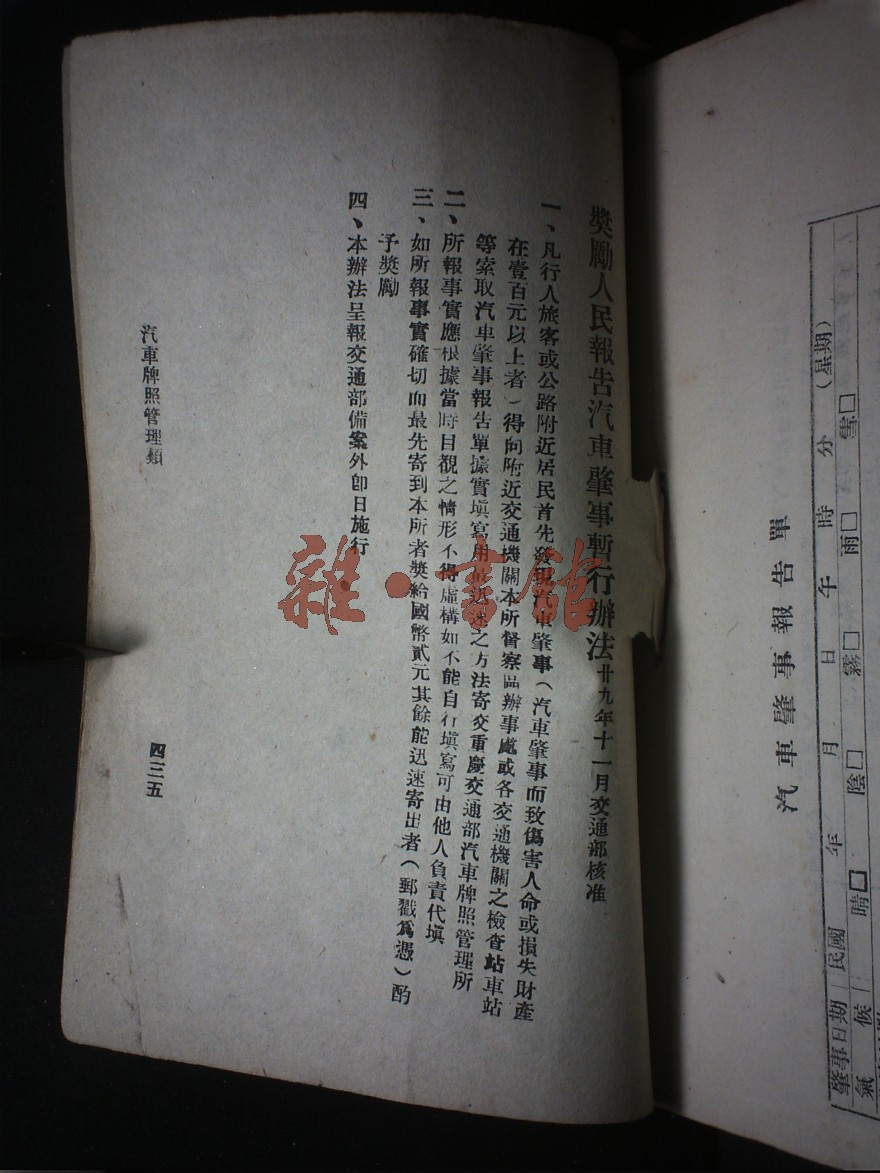 獎勵人民報告汽車肇事暫行辦法 廿九年十一月交通部核准
一、凡行人旅客或公路附近居民首先發現汽車肇事（汽車肇事而致傷害人命或損失財產
在壹百元以上者）得向附近交通機關本所督察區辦事處或各交通機關之檢查站車站
等索取汽車肇事報告單據實填寫用最迅速之方法寄交重慶交通部汽車牌照管理所
二、所報事實應根據當時目覩之情形不得虛構如不能自行填寫可由他人負責代填
三、如所報事實確切而最先寄到本所者獎給國幣貳元其餘能迅速寄出者（郵戳為憑）酌
予獎勵
四、本辦法呈報交通部備案外卽日施行
汽車牌照管理類
四三五
雜·書館
汽車肇事報告單
肇事日期 民國 年 月 日 午 時 分（星期）
氣候 晴□ 陰□ 霧□ 雨□ 雪□